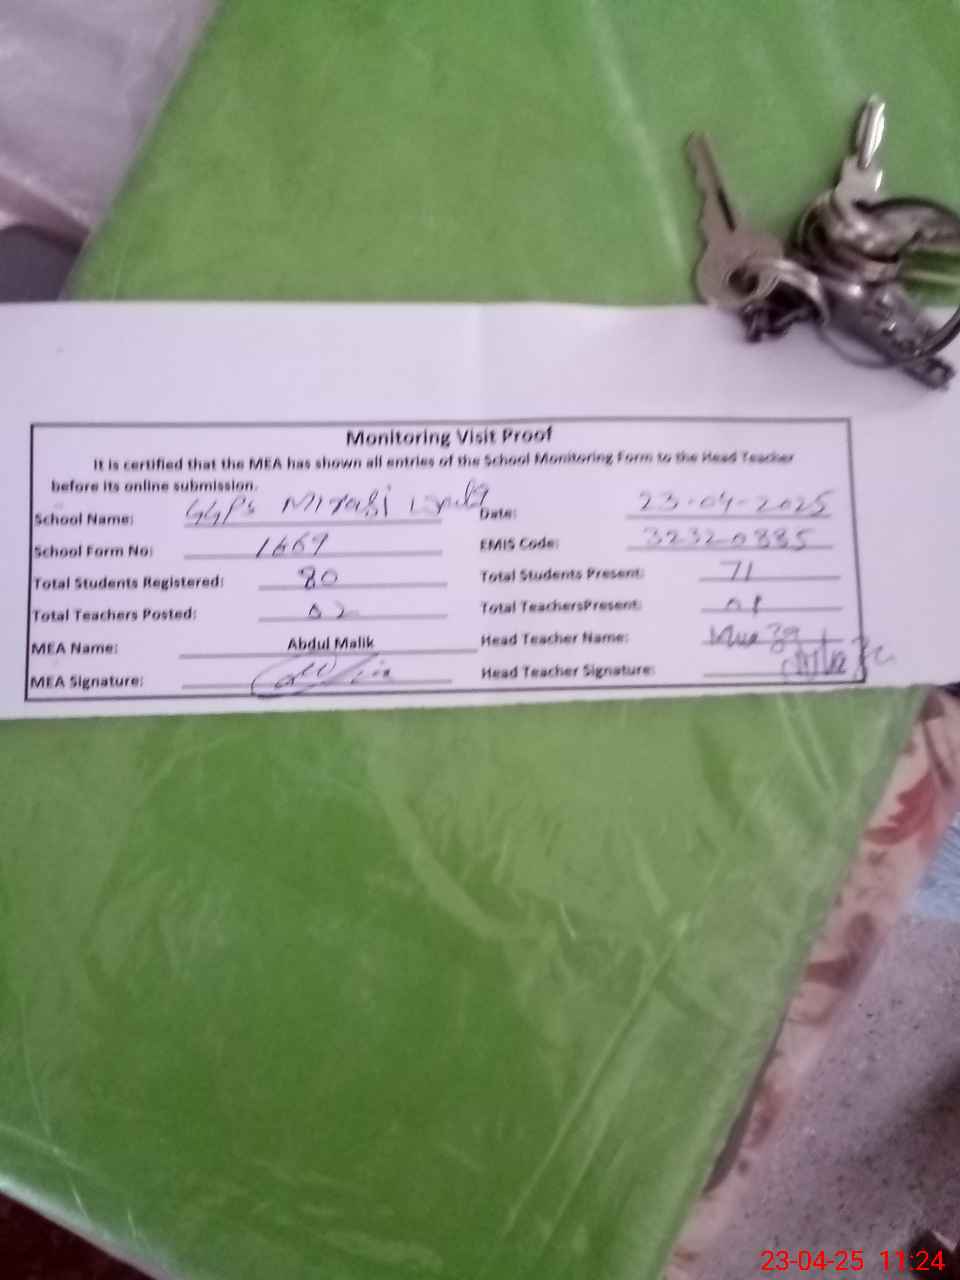 Monitoring Visit Proof
It is certified that the MEA has shown all entries of the School Monitoring Form to the Head Teacher
before its online submission.
School Name: GGPS Date: 23-04-2025
School Form No: 1669 EMIS Code: 32320885
Total Students Registered: 80 Total Students Present: 71
Total Teachers Posted: 02 Total TeachersPresent: 01
MEA Name: Abdul Malik Head Teacher Name:
MEA Signature: Head Teacher Signature:
23-04-25 11:24